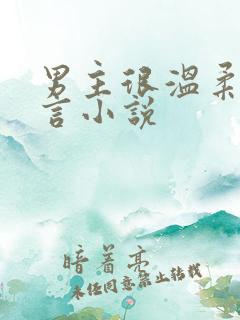 男主很温柔
言小说
暗着亮
未经同意禁止转载